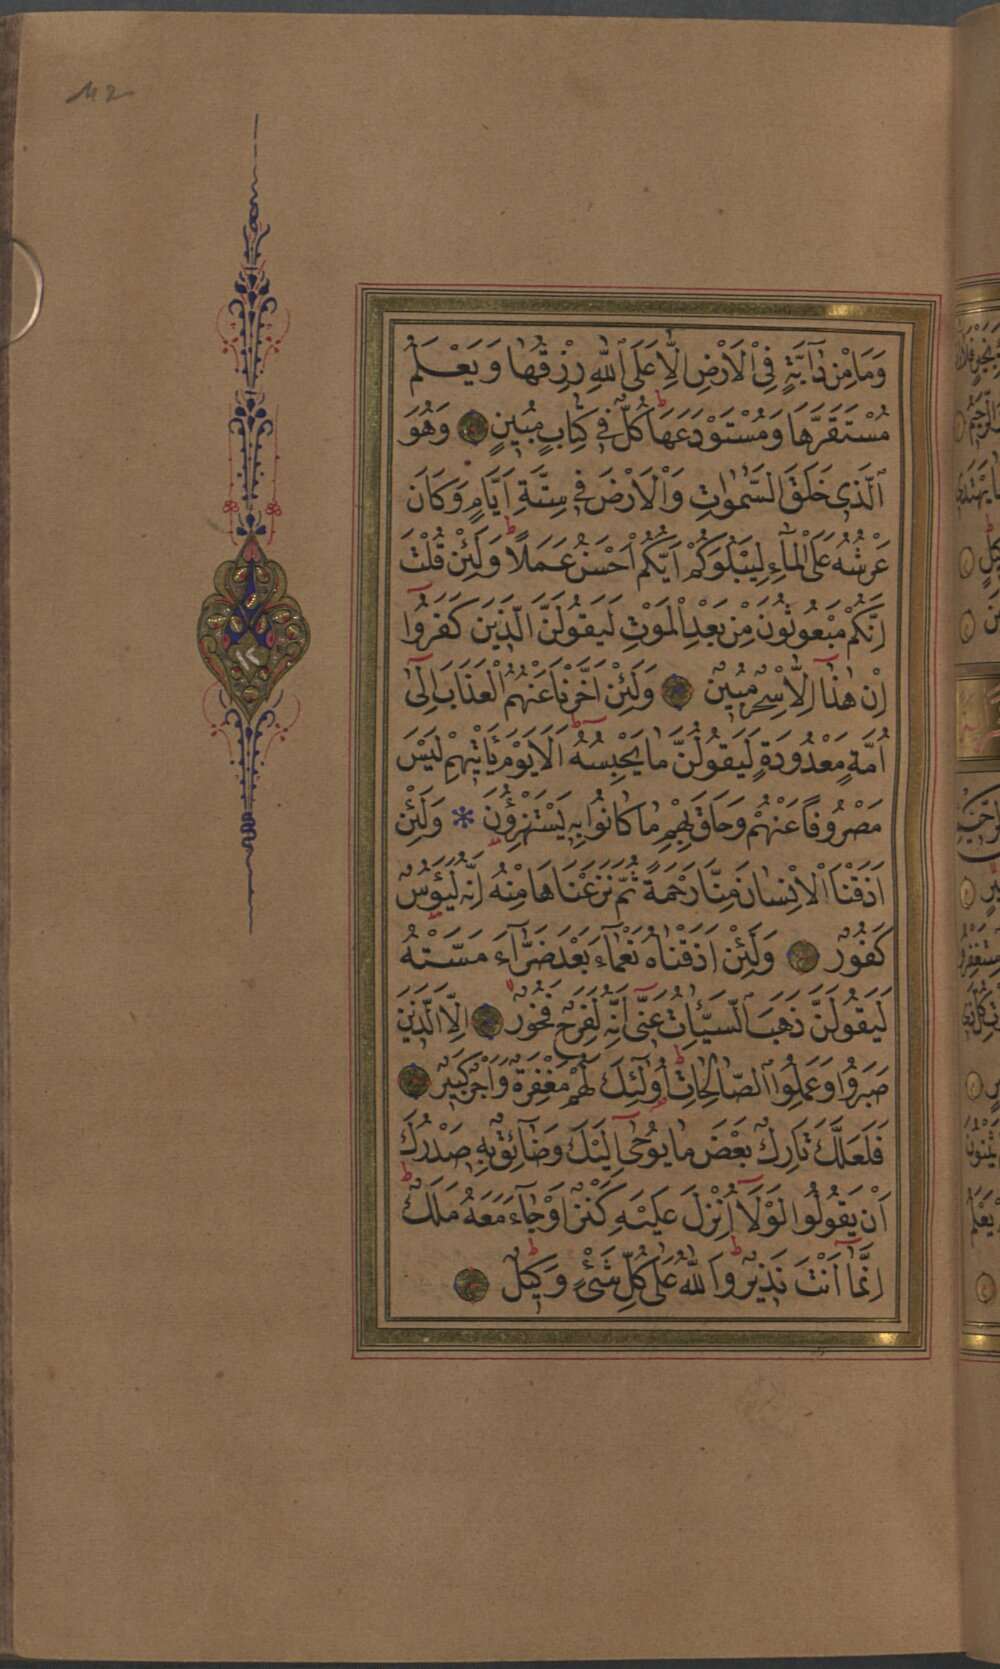 112
وَمَا مِنْ دَٓابَّةٍ فِي الْاَرْضِ اِلَّا عَلَى اللّٰهِ رِزْقُهَا وَيَعْلَمُ
مُسْتَقَرَّهَا وَمُسْتَوْدَعَهَا كُلٌّ فٖي كِتَابٍ مُبٖينٍ وَهُوَ
الَّذٖي خَلَقَ السَّمٰوَاتِ وَالْاَرْضَ فٖي سِتَّةِ اَيَّامٍ وَكَانَ
عَرْشُهُ عَلَى الْمَٓاءِ لِيَبْلُوَكُمْ اَيُّكُمْ اَحْسَنُ عَمَلًا وَلَئِنْ قُلْتَ
اِنَّكُمْ مَبْعُوثُونَ مِنْ بَعْدِ الْمَوْتِ لَيَقُولَنَّ الَّذٖينَ كَفَرُٓوا
اِنْ هٰذَٓا اِلَّا سِحْرٌ مُبٖينٌ وَلَئِنْ اَخَّرْنَا عَنْهُمُ الْعَذَابَ اِلٰٓى
اُمَّةٍ مَعْدُودَةٍ لَيَقُولُنَّ مَا يَحْبِسُهُ اَلَا يَوْمَ يَأْتٖيهِمْ لَيْسَ
مَصْرُوفًا عَنْهُمْ وَحَاقَ بِهِمْ مَا كَانُوا بِهٖ يَسْتَهْزِؤُنَ * وَلَئِنْ
اَذَقْنَا الْاِنْسَانَ مِنَّا رَحْمَةً ثُمَّ نَزَعْنَاهَا مِنْهُ اِنَّهُ لَيَؤُسٌ
كَفُورٌ وَلَئِنْ اَذَقْنَاهُ نَعْمَٓاءَ بَعْدَ ضَرَّٓاءَ مَسَّتْهُ
لَيَقُولَنَّ ذَهَبَ السَّيِّاٰتُ عَنّٖٓي اِنَّهُ لَفَرِحٌ فَخُورٌ اِلَّا الَّذٖينَ
صَبَرُوا وَعَمِلُوا الصَّالِحَاتِ اُولٰٓئِكَ لَهُمْ مَغْفِرَةٌ وَاَجْرٌ كَبٖيرٌ
فَلَعَلَّكَ تَارِكٌ بَعْضَ مَا يُوحٰٓى اِلَيْكَ وَضَٓائِقٌ بِهٖ صَدْرُكَ
اَنْ يَقُولُوا لَوْلَٓا اُنْزِلَ عَلَيْهِ كَنْزٌ اَوْ جَٓاءَ مَعَهُ مَلَكٌ
اِنَّمَٓا اَنْتَ نَذٖيرٌ وَاللّٰهُ عَلٰى كُلِّ شَيْءٍ وَكٖيلٌ